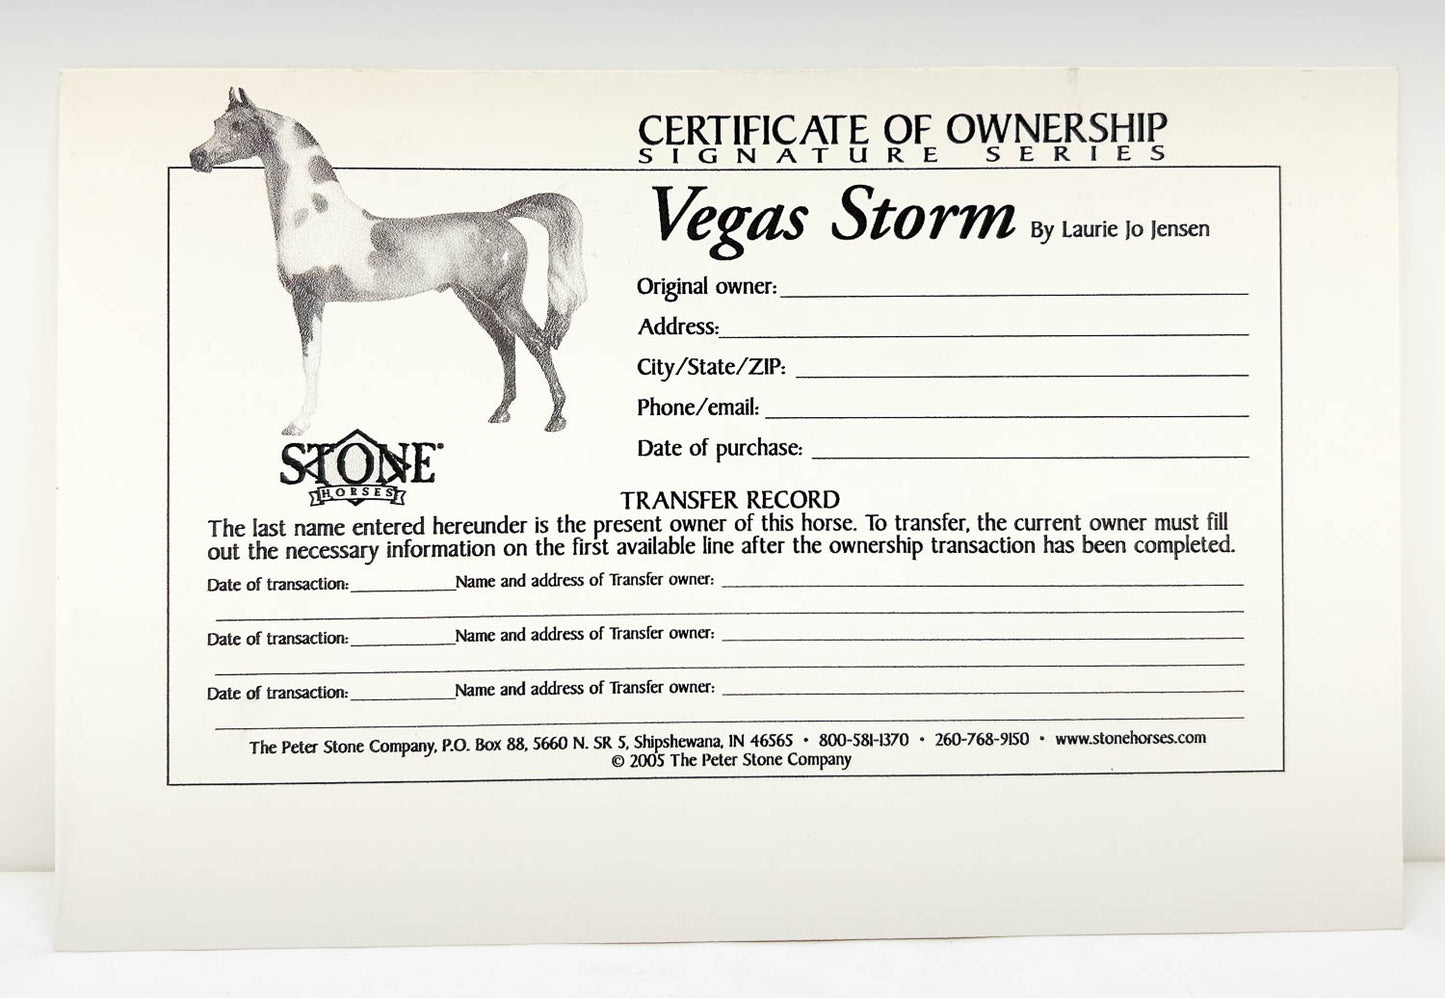 CERTIFICATE OF OWNERSHIP
SIGNATURE SERIES
Vegas Storm By Laurie Jo Jensen
Original owner:
Address:
City/State/ZIP:
Phone/email:
Date of purchase:
STONE
HORSES
TRANSFER RECORD
The last name entered hereunder is the present owner of this horse. To transfer, the current owner must fill
out the necessary information on the first available line after the ownership transaction has been completed.
Date of transaction: Name and address of Transfer owner:
Date of transaction: Name and address of Transfer owner:
Date of transaction: Name and address of Transfer owner:
The Peter Stone Company, P.O. Box 88, 5660 N. SR 5, Shipshewana, IN 46565 • 800-581-1370 • 260-768-9150 • www.stonehorses.com
© 2005 The Peter Stone Company